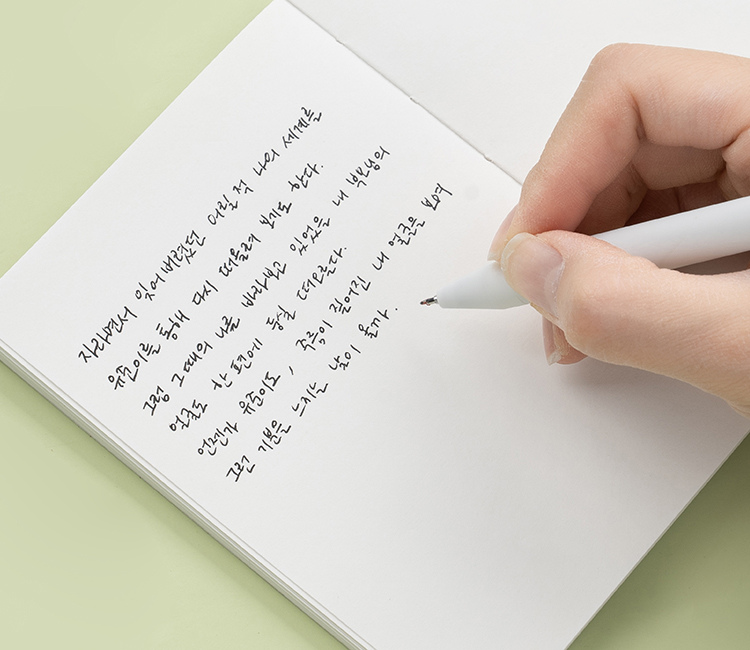 자라면서 잊어버렸던 어릴 적 나의 세계를
유준이를 통해 다시 떠올려 보기도 한다.
그럼 그때의 나를 바라보고 있었을 내 부모님의
얼굴도 한 편에 둥실 떠오른다.
언젠가 유준이도, 주름이 짙어진 내 얼굴을 보며
그런 기분을 느끼는 날이 올까.